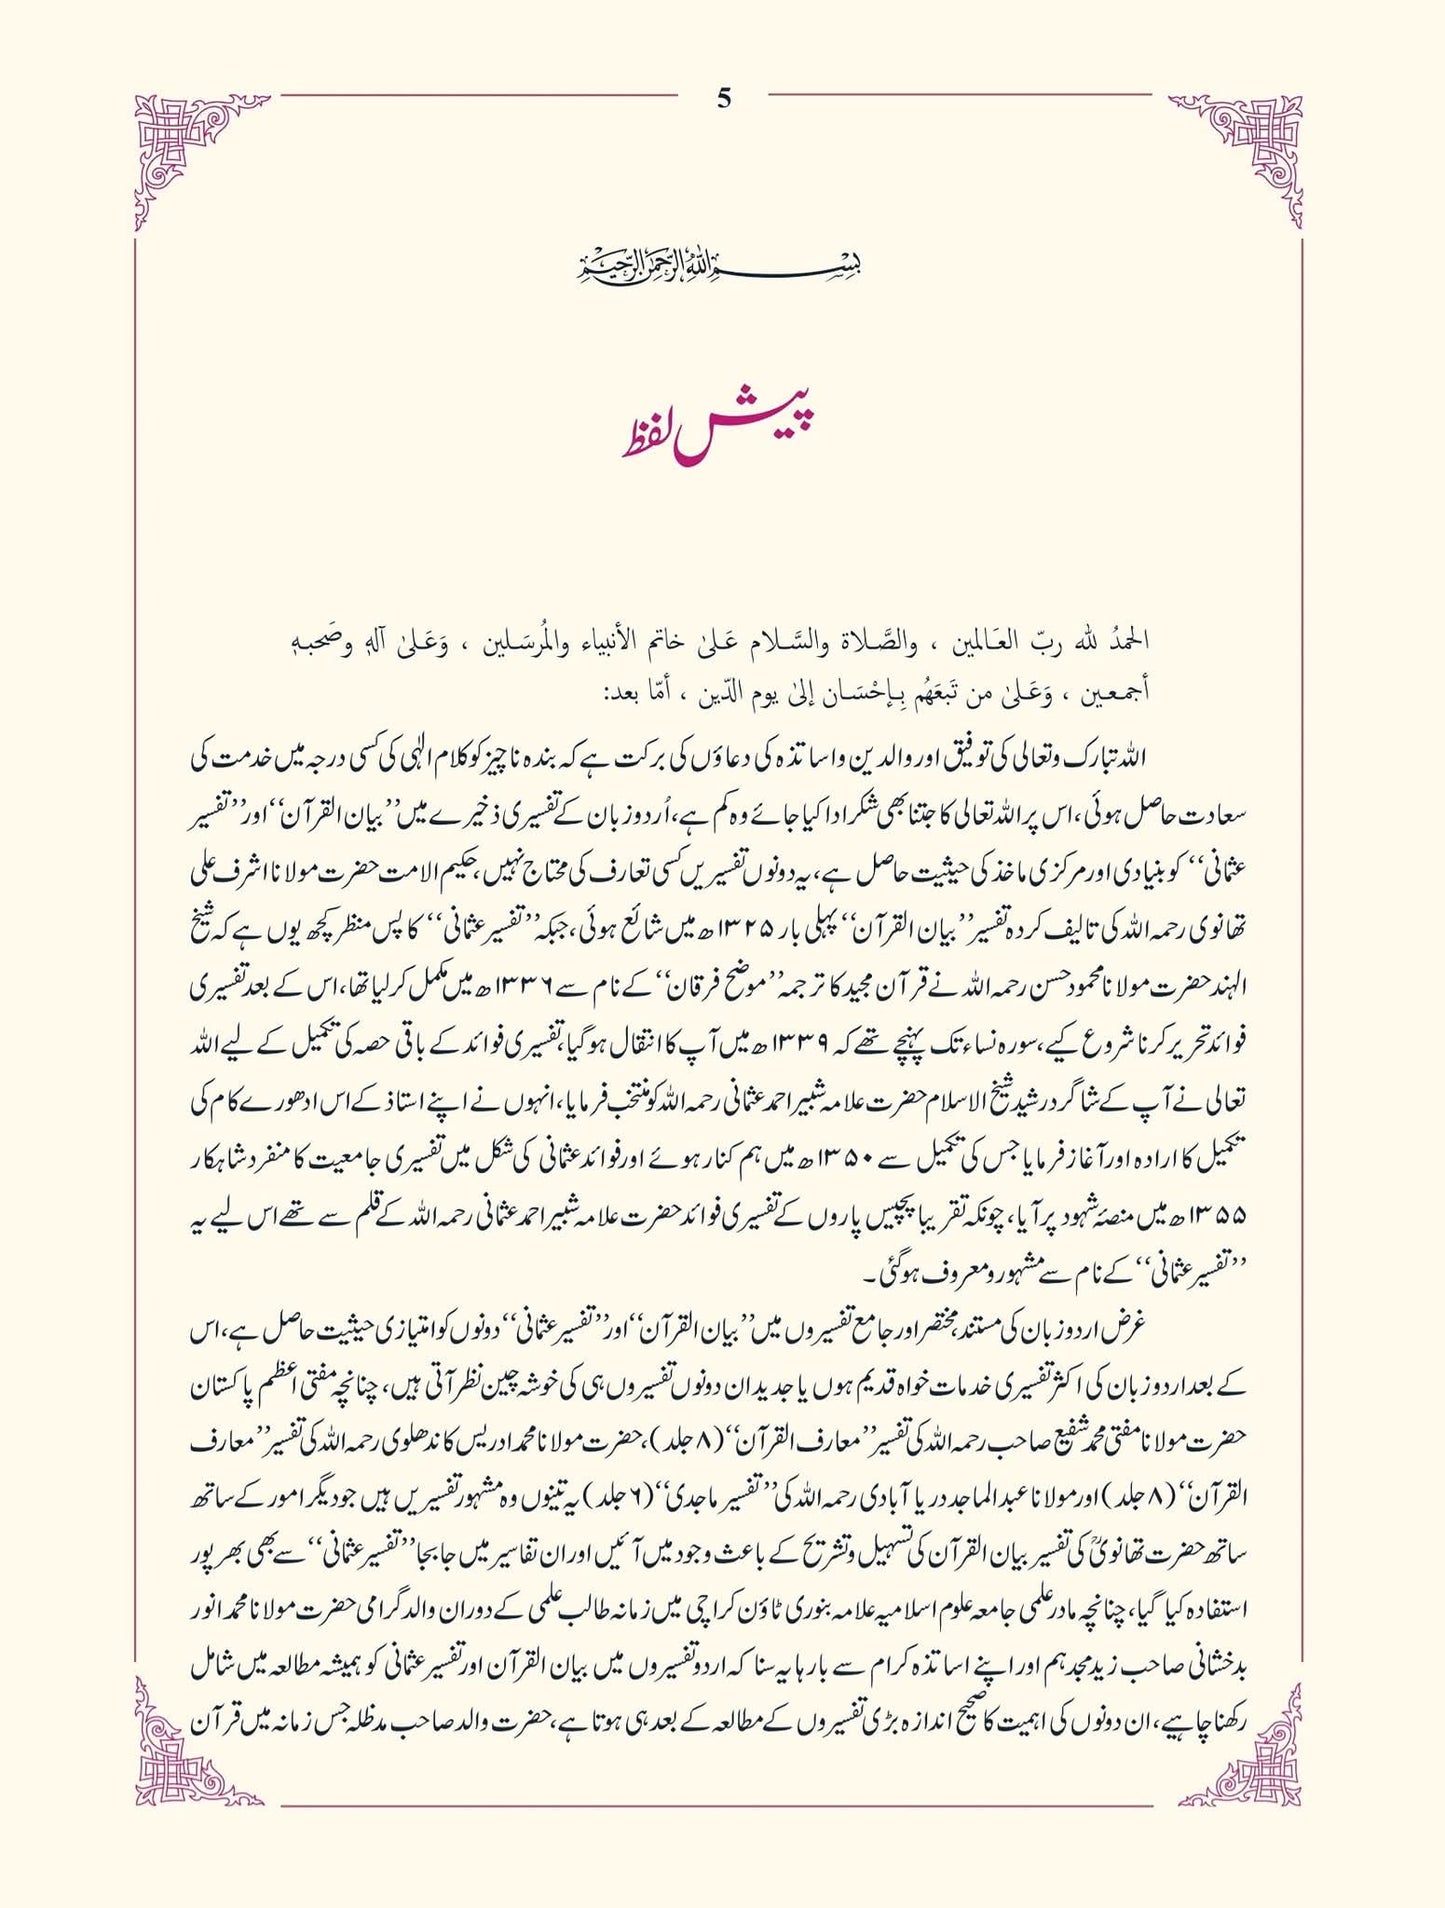 5
بِسْمِ اللهِ الرَّحْمٰنِ الرَّحِيْمِ
پیش لفظ
الحمدُ لله ربّ العَالمين ، والصَّلاة والسَّلام عَلىٰ خاتم الأنبياء والمُرسَلين ، وَعَلىٰ آلهٖ وصَحبهٖ
أجمعين ، وَعَلىٰ من تَبعَهُم بِإحْسَان إلىٰ يوم الدّين ، أمّا بعد:
اللہ تبارک وتعالی کی توفیق اور والدین و اساتذہ کی دعاؤں کی برکت ہے کہ بندہ ناچیز کو کلام الٰہی کی کسی درجہ میں خدمت کی
سعادت حاصل ہوئی، اس پر اللہ تعالی کا جتنا بھی شکر ادا کیا جائے وہ کم ہے، اُردو زبان کے تفسیری ذخیرے میں ’’بیان القرآن‘‘ اور ’’تفسیر
عثمانی‘‘ کو بنیادی اور مرکزی ماخذ کی حیثیت حاصل ہے، یہ دونوں تفسیریں کسی تعارف کی محتاج نہیں، حکیم الامت حضرت مولانا اشرف علی
تھانوی رحمہ اللہ کی تالیف کردہ تفسیر ’’بیان القرآن‘‘ پہلی بار ۱۳۲۵ھ میں شائع ہوئی، جبکہ ’’تفسیر عثمانی‘‘ کا پس منظر کچھ یوں ہے کہ شیخ
الہند حضرت مولانا محمود حسن رحمہ اللہ نے قرآن مجید کا ترجمہ ’’موضح فرقان‘‘ کے نام سے ۱۳۳۶ھ میں مکمل کر لیا تھا، اس کے بعد تفسیری
فوائد تحریر کرنا شروع کیے، سورہ نساء تک پہنچے تھے کہ ۱۳۳۹ھ میں آپ کا انتقال ہوگیا، تفسیری فوائد کے باقی حصہ کی تکمیل کے لیے اللہ
تعالی نے آپ کے شاگرد رشید شیخ الاسلام حضرت علامہ شبیر احمد عثمانی رحمہ اللہ کو منتخب فرمایا، انہوں نے اپنے استاذ کے اس ادھورے کام کی
تکمیل کا ارادہ اور آغاز فرمایا جس کی تکمیل سے ۱۳۵۰ھ میں ہم کنار ہوئے اور فوائد عثمانی کی شکل میں تفسیری جامعیت کا منفرد شاہکار
۱۳۵۵ھ میں منصۂ شہود پر آیا، چونکہ تقریبا پچیس پاروں کے تفسیری فوائد حضرت علامہ شبیر احمد عثمانی رحمہ اللہ کے قلم سے تھے اس لیے یہ
’’تفسیر عثمانی‘‘ کے نام سے مشہور و معروف ہوگئی۔
غرض اردو زبان کی مستند، مختصر اور جامع تفسیروں میں ’’بیان القرآن‘‘ اور ’’تفسیر عثمانی‘‘ دونوں کو امتیازی حیثیت حاصل ہے، اس
کے بعد اردو زبان کی اکثر تفسیری خدمات خواہ قدیم ہوں یا جدید ان دونوں تفسیروں ہی کی خوشہ چین نظر آتی ہیں، چنانچہ مفتی اعظم پاکستان
حضرت مولانا مفتی محمد شفیع صاحب رحمہ اللہ کی تفسیر ’’معارف القرآن‘‘ (۸ جلد)، حضرت مولانا محمد ادریس کاندھلوی رحمہ اللہ کی تفسیر ’’معارف
القرآن‘‘ (۸ جلد) اور مولانا عبد الماجد دریا آبادی رحمہ اللہ کی ’’تفسیر ماجدی‘‘ (۶ جلد) یہ تینوں وہ مشہور تفسیریں ہیں جو دیگر امور کے ساتھ
ساتھ حضرت تھانویؒ کی تفسیر بیان القرآن کی تسہیل و تشریح کے باعث وجود میں آئیں اور ان تفاسیر میں جابجا ’’تفسیر عثمانی‘‘ سے بھی بھرپور
استفادہ کیا گیا، چنانچہ مادر علمی جامعہ علوم اسلامیہ علامہ بنوری ٹاؤن کراچی میں زمانہ طالب علمی کے دوران والد گرامی حضرت مولانا محمد انور
بدخشانی صاحب زید مجدہم اور اپنے اساتذہ کرام سے بارہا یہ سنا کہ اردو تفسیروں میں بیان القرآن اور تفسیر عثمانی کو ہمیشہ مطالعہ میں شامل
رکھنا چاہیے، ان دونوں کی اہمیت کا صحیح اندازہ بڑی تفسیروں کے مطالعہ کے بعد ہی ہوتا ہے، حضرت والد صاحب مدظلہ جس زمانہ میں قرآن